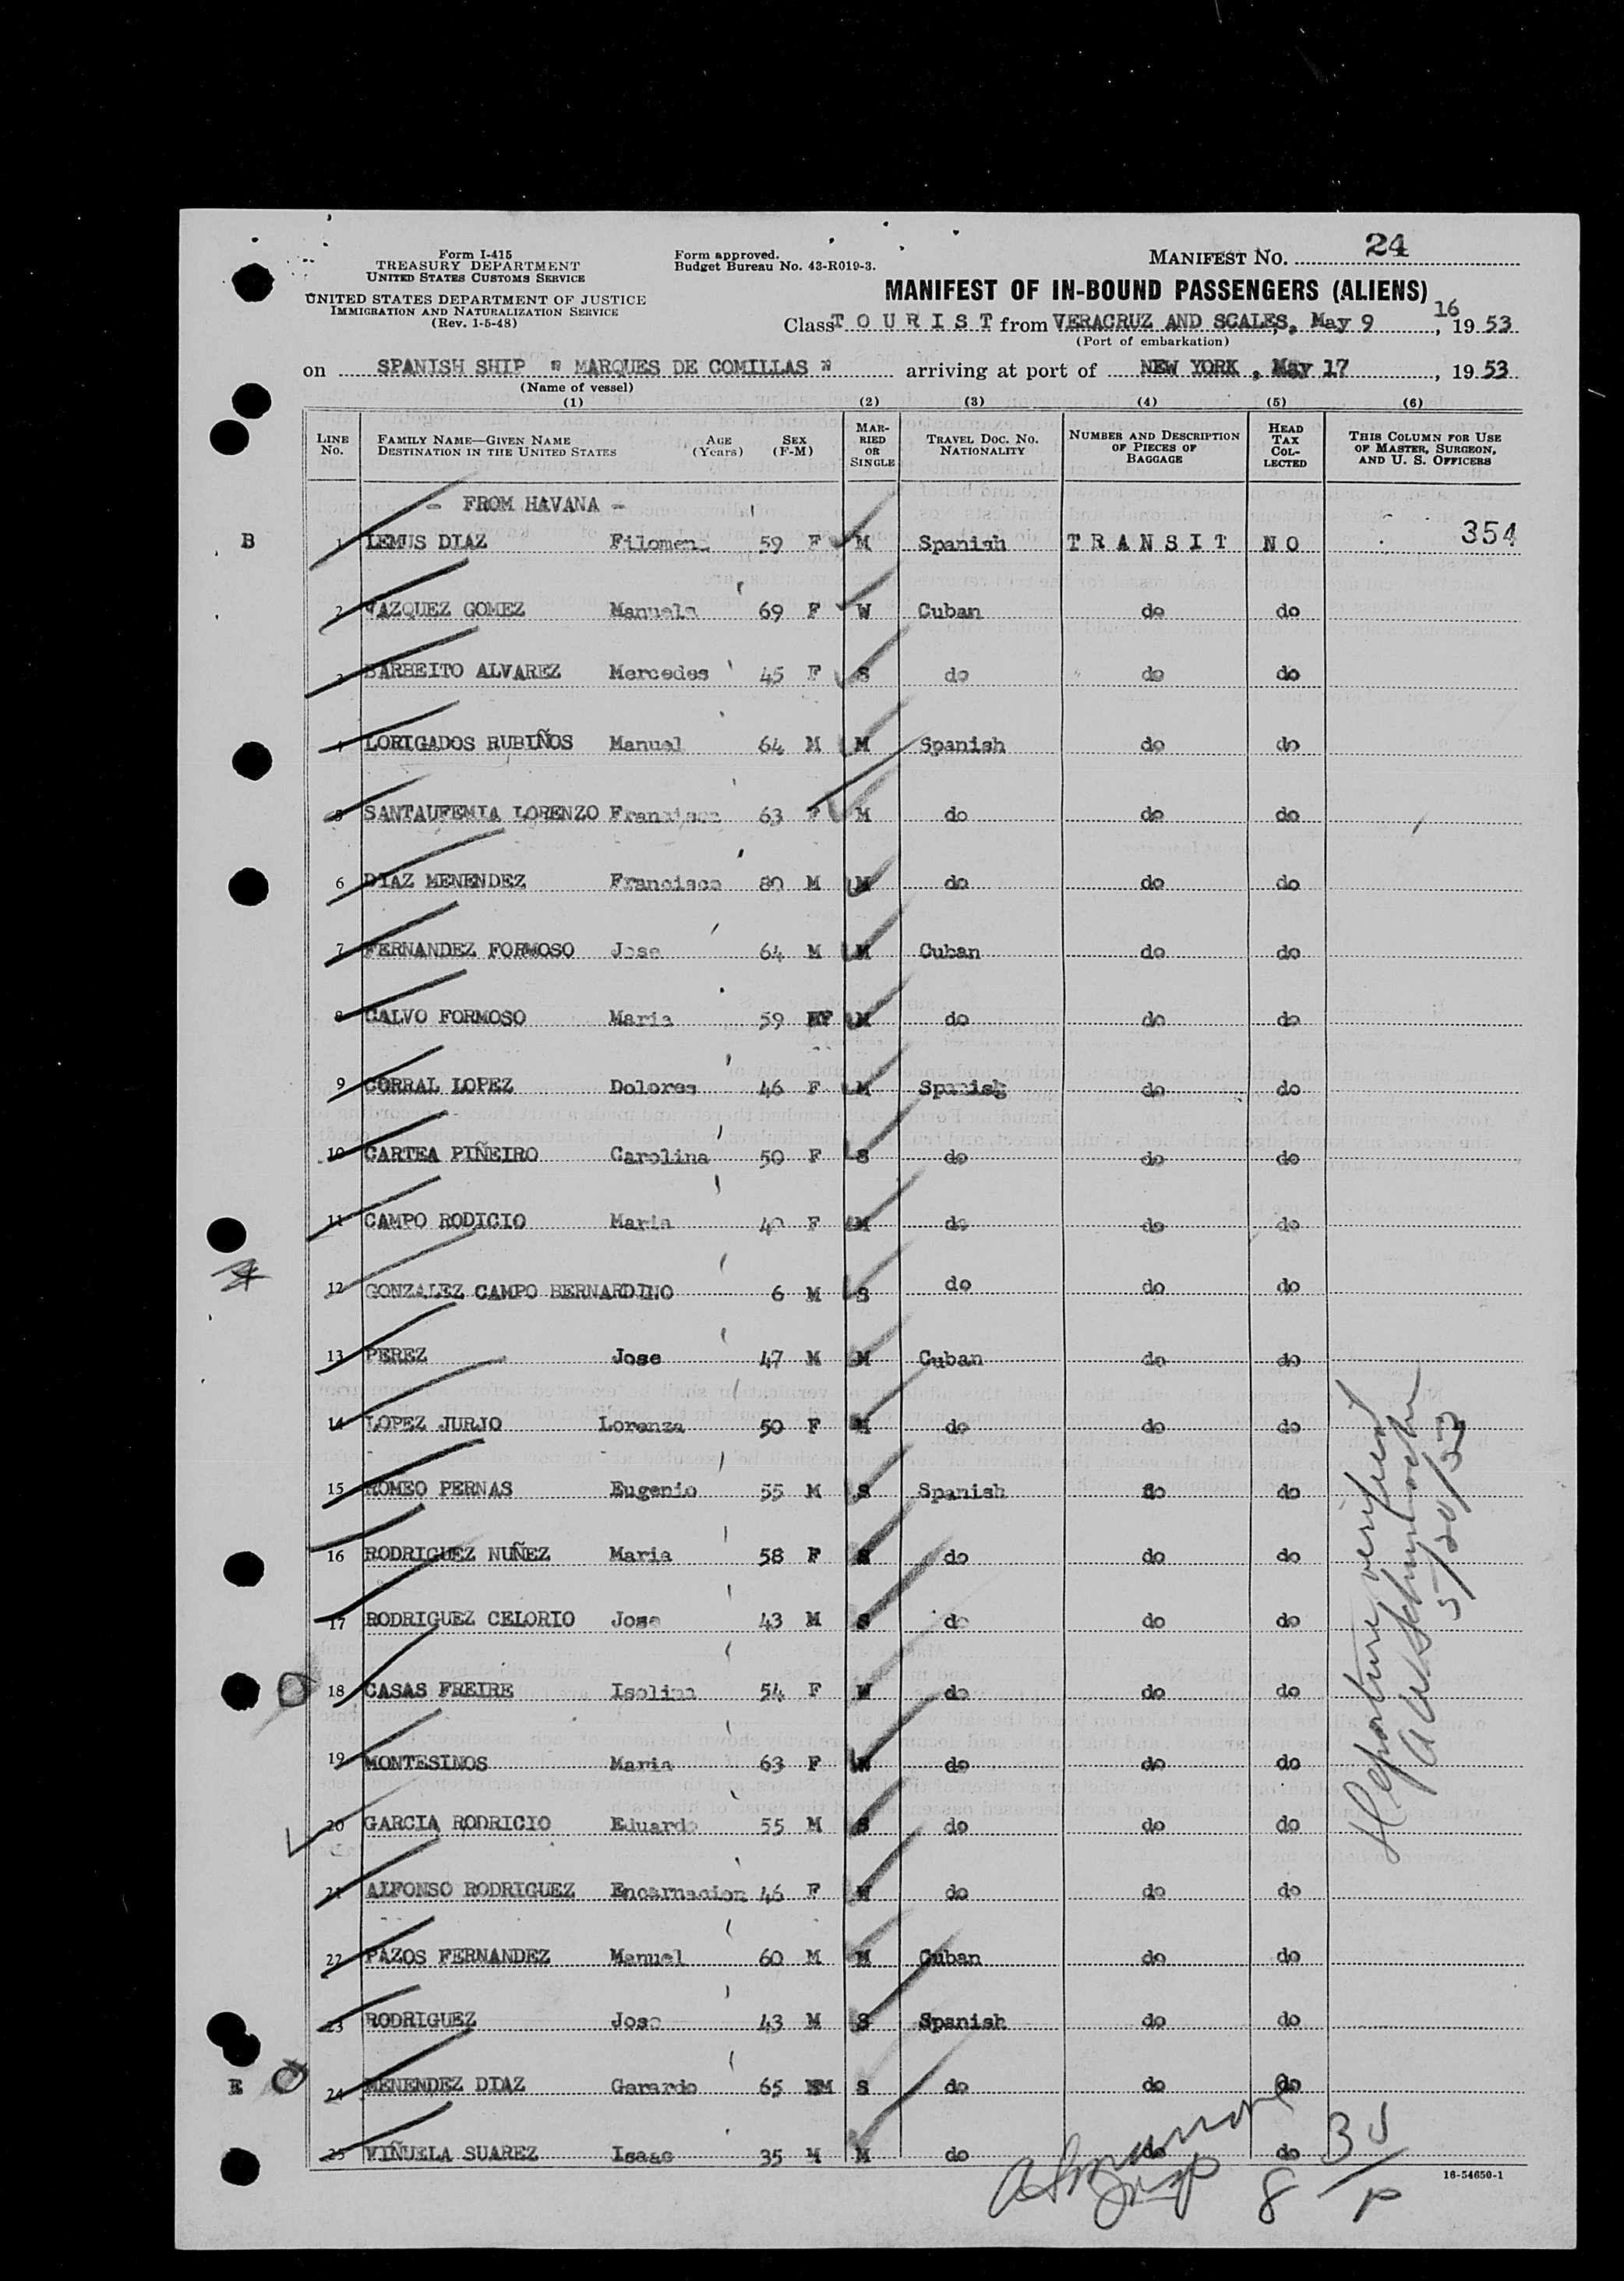 Form I-415
TREASURY DEPARTMENT
UNITED STATES CUSTOMS SERVICE
UNITED STATES DEPARTMENT OF JUSTICE
IMMIGRATION AND NATURALIZATION SERVICE
(Rev. 1-5-48)
Form approved.
Budget Bureau No. 43-R019-3.
MANIFEST NO. 24
MANIFEST OF IN-BOUND PASSENGERS (ALIENS)
Class T O U R I S T from VERACRUZ AND SCALES, May 9, 16 1953
(Port of embarkation)
on SPANISH SHIP " MARQUES DE COMILLAS " arriving at port of NEW YORK, May 17, 1953
(Name of vessel)
(1) (2) (3) (4) (5) (6)
LINE NO. FAMILY NAME—GIVEN NAME DESTINATION IN THE UNITED STATES AGE (Years) SEX (F-M) MARRIED OR SINGLE TRAVEL DOC. NO. NATIONALITY NUMBER AND DESCRIPTION OF PIECES OF BAGGAGE HEAD TAX COLLECTED THIS COLUMN FOR USE OF MASTER, SURGEON, AND U. S. OFFICERS
- FROM HAVANA -
B 1 LEMUS DIAZ Filomena 59 F M Spanish T R A N S I T N O 354
2 VAZQUEZ GOMEZ Manuela 69 F W Cuban do do
3 BARBEITO ALVAREZ Mercedes 45 F S do do do
4 LORIGADOS RUBIÑOS Manuel 64 M M Spanish do do
5 SANTAUFEMIA LORENZO Francisca 63 F M do do do
6 DIAZ MENENDEZ Francisco 80 M M do do do
7 FERNANDEZ FORMOSO Jose 64 M M Cuban do do
8 CALVO FORMOSO Maria 59 F M do do do
9 CORRAL LOPEZ Dolores 46 F M Spanish do do
10 CARTEA PIÑEIRO Carolina 50 F S do do do
11 CAMPO RODICIO Maria 40 F M do do do
12 GONZALEZ CAMPO BERNARDINO 6 M S do do do
13 PEREZ Jose 47 M M Cuban do do
14 LOPEZ JURJO Lorenza 50 F M do do do
15 ROMEO PERNAS Eugenio 55 M S Spanish do do
16 RODRIGUEZ NUÑEZ Maria 58 F S do do do
17 RODRIGUEZ CELORIO Jose 43 M S do do do
18 CASAS FREIRE Isolina 54 F W do do do
19 MONTESINOS Maria 63 F W do do do
20 GARCIA RODRICIO Eduardo 55 M S do do do
21 ALFONSO RODRIGUEZ Encarnacion 46 F M do do do
22 PAZOS FERNANDEZ Manuel 60 M M Cuban do do
23 RODRIGUEZ Jose 43 M S Spanish do do
E 24 MENENDEZ DIAZ Gerardo 65 M S do do do
25 VIÑUELA SUAREZ Isaac 35 M M do do do
Departure verified
5/20/53
8
16-54650-1